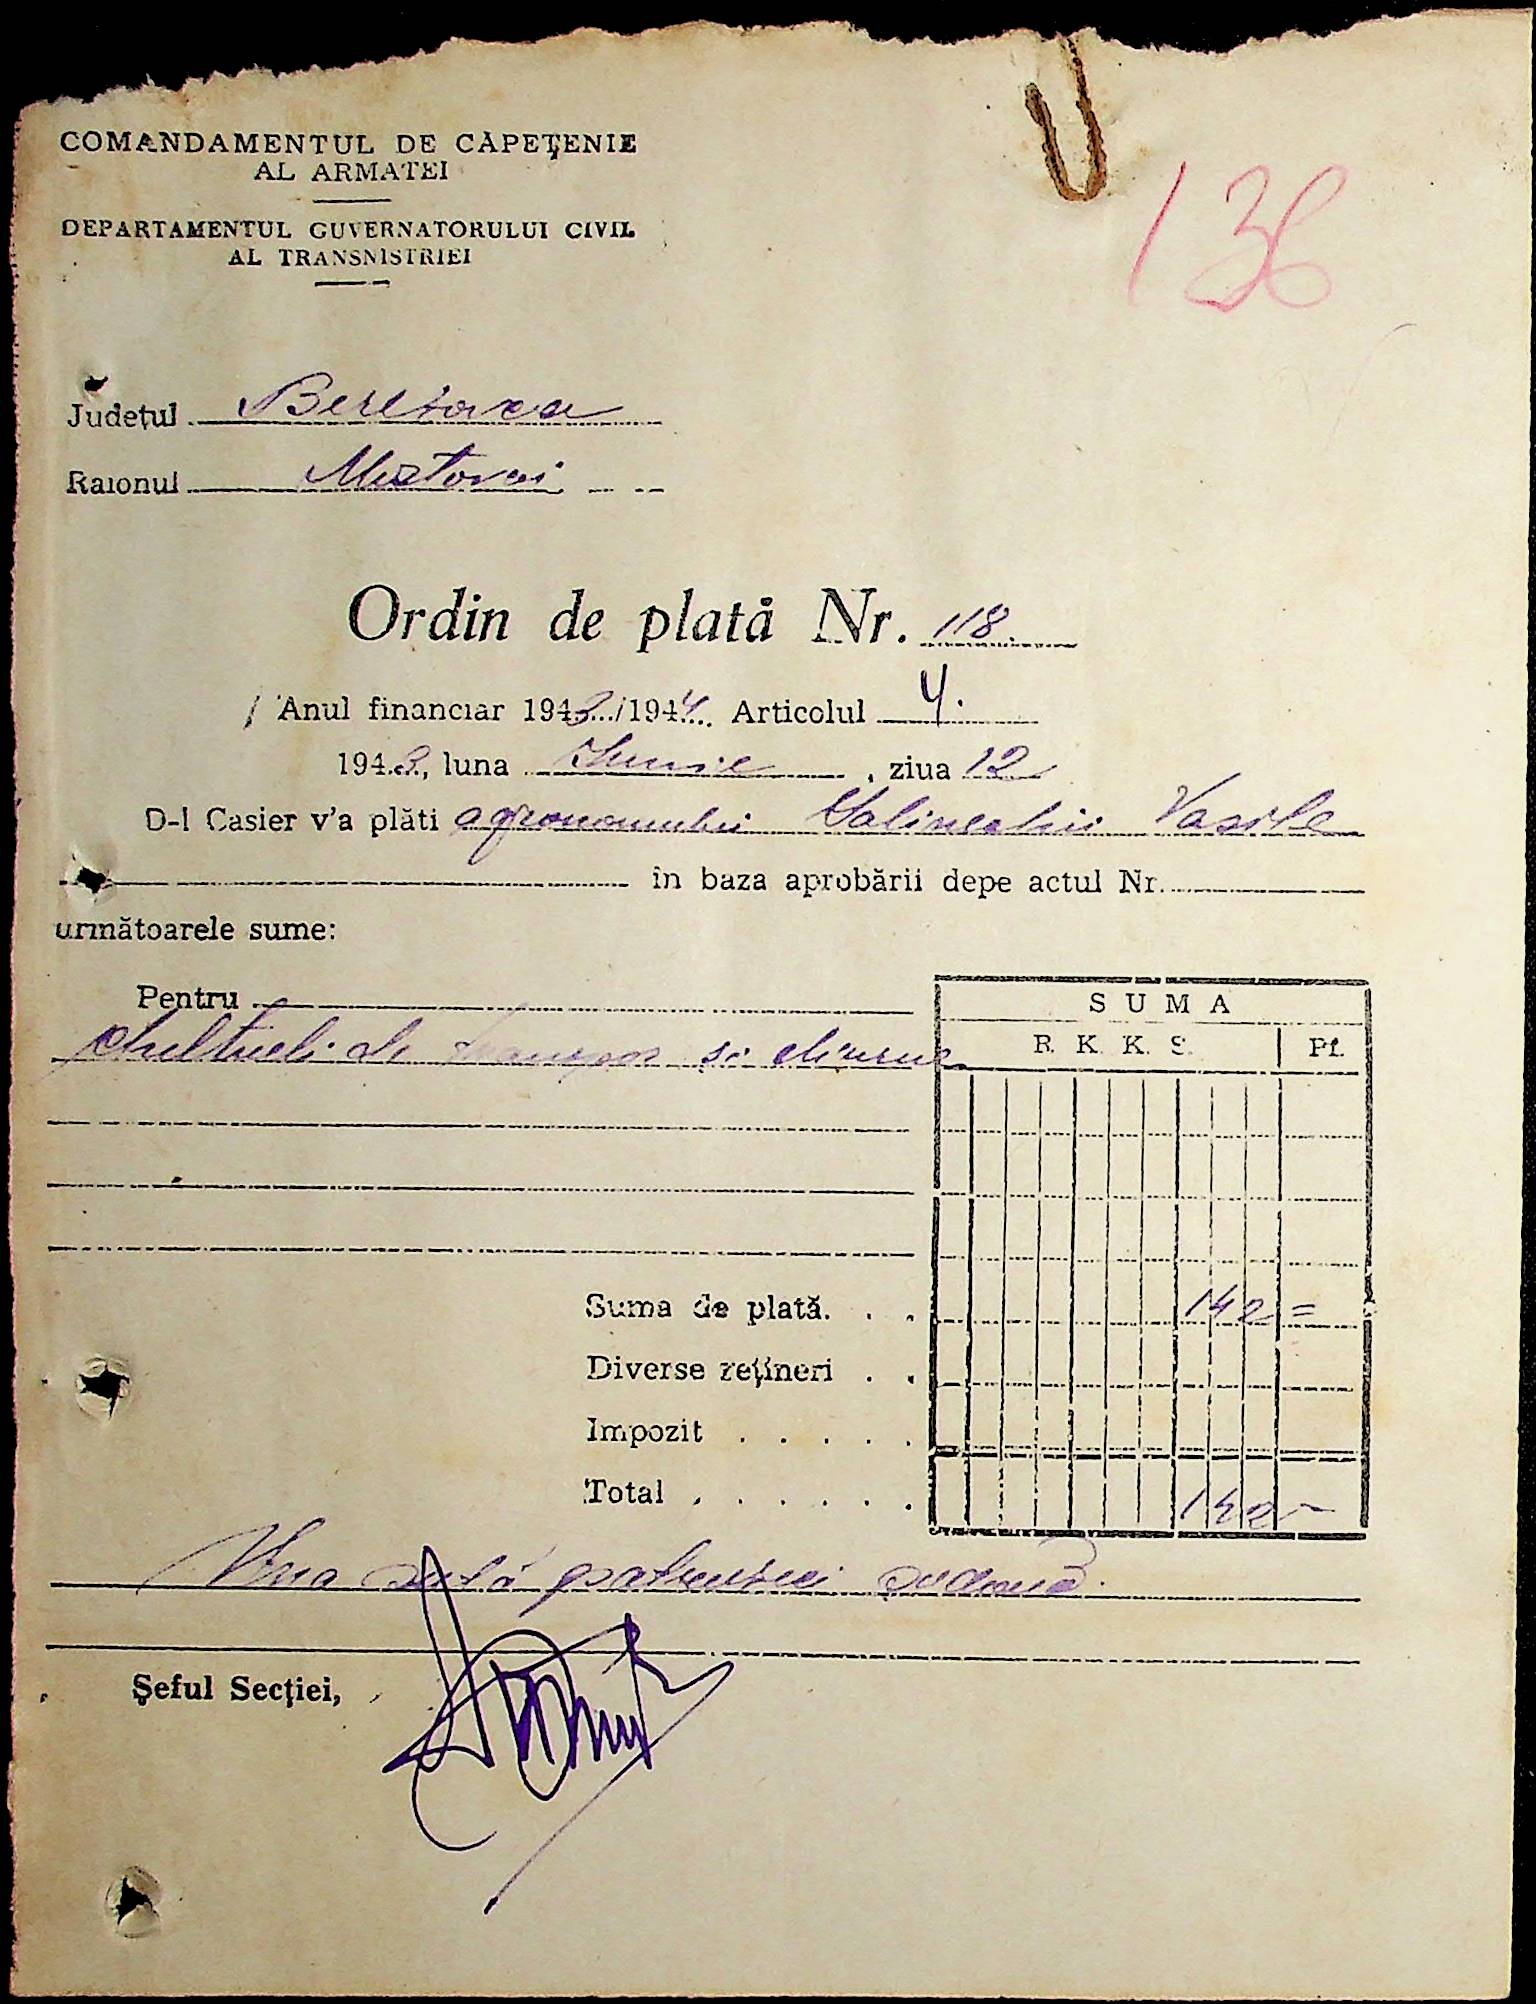 COMANDAMENTUL DE CĂPEŢENIE
AL ARMATEI
DEPARTAMENTUL GUVERNATORULUI CIVIL
AL TRANSNISTRIEI
136
Judeţul Berezovca
Raionul Mostovoi
Ordin de plată Nr. 118.
Anul financiar 1943/1944. Articolul 4.
1943, luna Iunie, ziua 12
D-l Casier v'a plăti agronomului Vasile
în baza aprobării depe actul Nr.
următoarele sume:
Pentru
cheltueli de transpor si diurne
SUMA
R. K. K. S. Pf.
Suma de plată. . . 142 =
Diverse reţineri . .
Impozit . . . . .
Total . . . . . . . 142 -
Una sută patruzeci două
Şeful Secţiei,